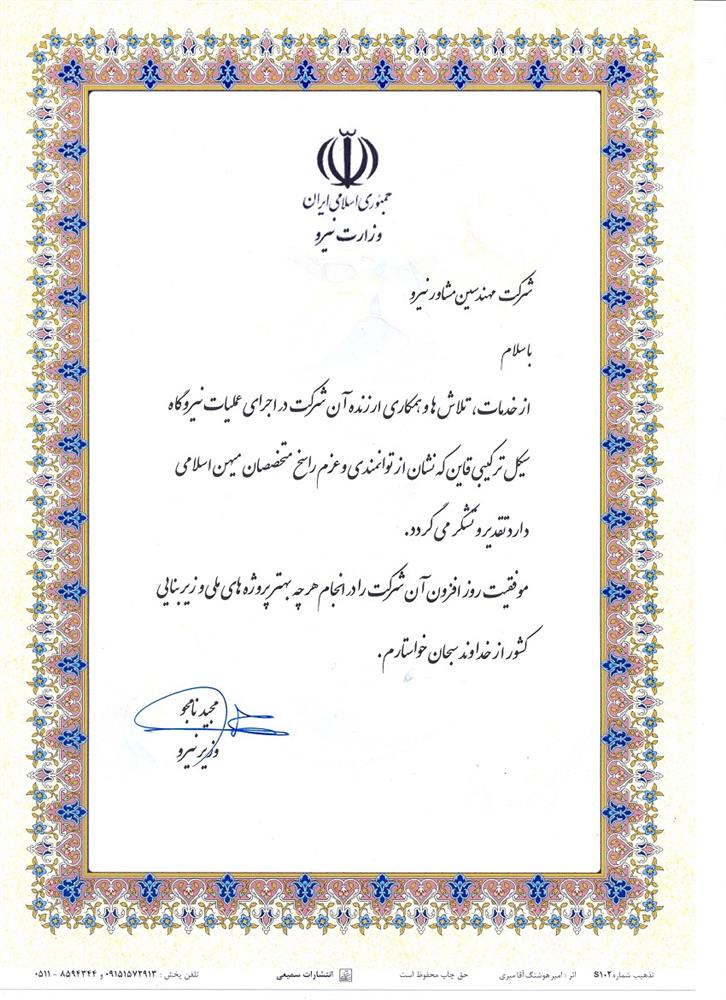 جمهوری اسلامی ایران
وزارت نیرو
شرکت مهندسین مشاور نیرو
باسلام
از خدمات، تلاش ها و همکاری ارزنده آن شرکت در اجرای عملیات نیروگاه
سیکل ترکیبی قاین که نشان از توانمندی و عزم راسخ متخصصان میهن اسلامی
دارد تقدیر و تشکر می گردد.
موفقیت روز افزون آن شرکت را در انجام هر چه بهتر پروژه های ملی و زیربنایی
کشور از خداوند سبحان خواستارم.
مجید نامجو
وزیر نیرو
تذهیب شماره S۱۰۲ اثر : امیرهوشنگ آقامیری حق چاپ محفوظ است انتشارات سمیعی تلفن پخش : ۰۹۱۵۱۵۷۲۹۱۳ و ۸۵۹۴۳۴۴ - ۰۵۱۱